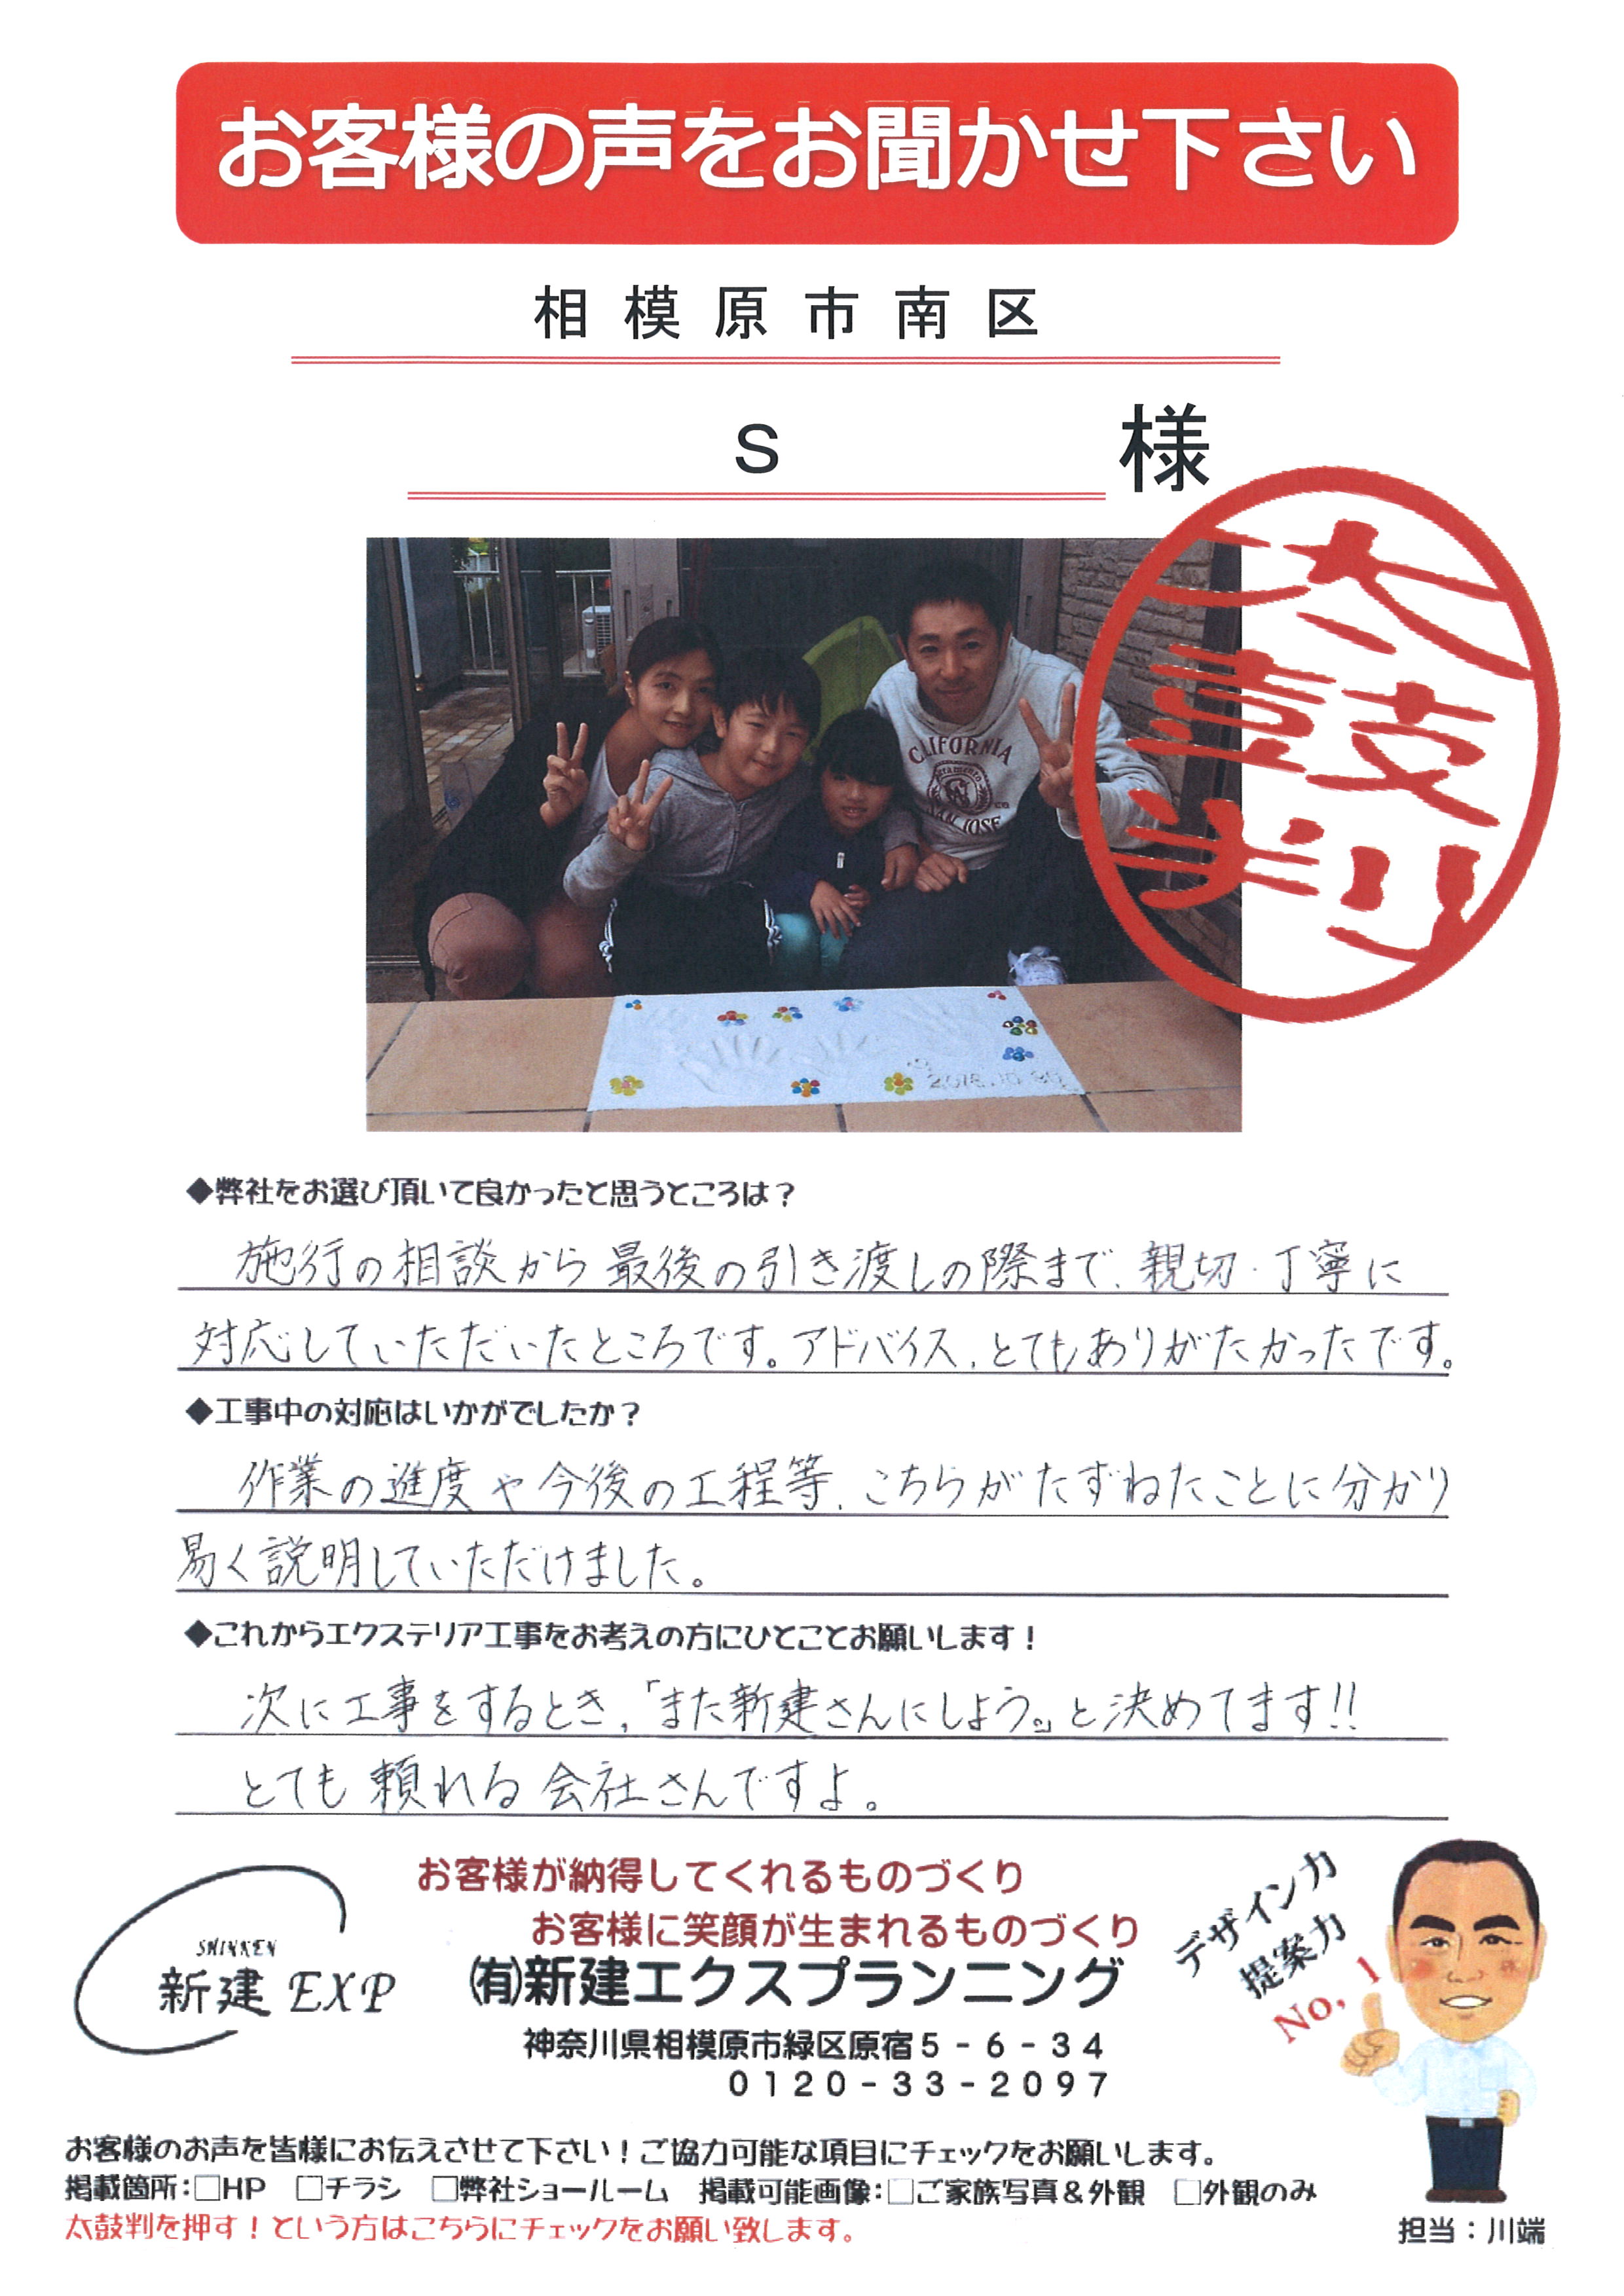 お客様の声をお聞かせ下さい
相模原市南区
S 様
太鼓判
CALIFORNIA
Sacramento
SAN JOSE
2016.10.30
◆弊社をお選び頂いて良かったと思うところは？
施行の相談から最後の引き渡しの際まで、親切・丁寧に
対応していただいたところです。アドバイス、とてもありがたかったです。
◆工事中の対応はいかがでしたか？
作業の進度や今後の工程等、こちらがたずねたことに分かり
易く説明していただけました。
◆これからエクステリア工事をお考えの方にひとことお願いします！
次に工事をするとき、「また新建さんにしよう。」と決めてます!!
とても頼れる会社さんですよ。
お客様が納得してくれるものづくり
お客様に笑顔が生まれるものづくり
SHINKEN
新建 EXP
㈲新建エクスプランニング
神奈川県相模原市緑区原宿５－６－３４
０１２０－３３－２０９７
デザイン力
提案力
No,1
お客様のお声を皆様にお伝えさせて下さい！ご協力可能な項目にチェックをお願いします。
掲載箇所：□HP □チラシ □弊社ショールーム 掲載可能画像：□ご家族写真＆外観 □外観のみ
太鼓判を押す！という方はこちらにチェックをお願い致します。
担当：川端